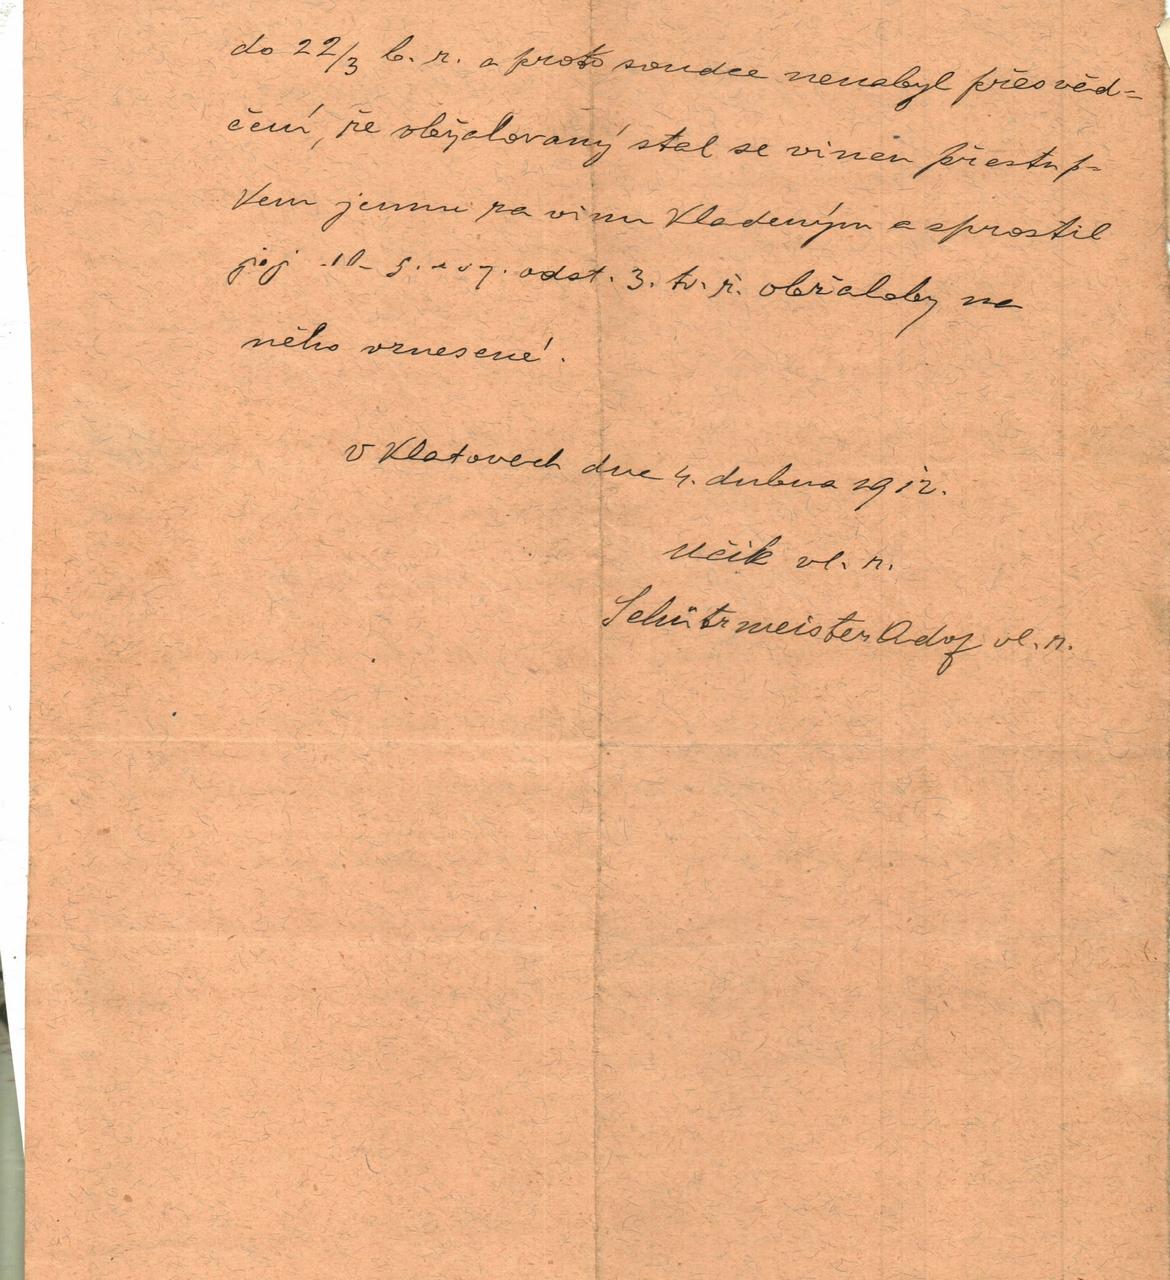 do 22/3 b. r. a proto soudce nenabyl přesvěd-
čení, že obžalovaný stal se vinen přestup-
kem jemu za vinu kladeným a sprostil
jej odst. 3. tr. ř. obžaloby na
něho vznesené.
V Klatovech dne 4. dubna 1912.
Učík vl. r.
Schützmeister Adof vl. r.